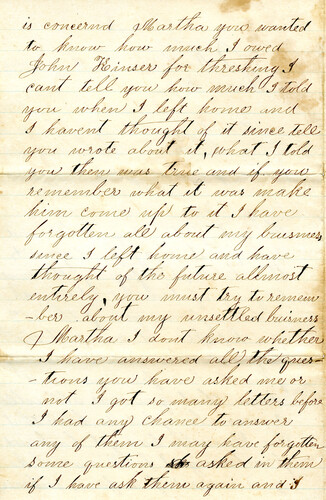 is concernd Martha you wanted
to know how much I owed
John Kinser for threshing I
cant tell you how much I told
you when I left home and
I havent thought of it since tell
you wrote about it, what I told
you them was true and if you
remember what it was make
him come up to it I have
forgotten all about my buisness
since I left home and have
thought of the future allmost
entirely, you must try to remem
-ber about my unsettled buisness
Martha I dont know whether
I have answered all, the ques-
-tions you have asked me or
not I got so many letters before
I had any chance to answer
any of them I may have forgotten
some questions asked in them
if I have ask them again and I